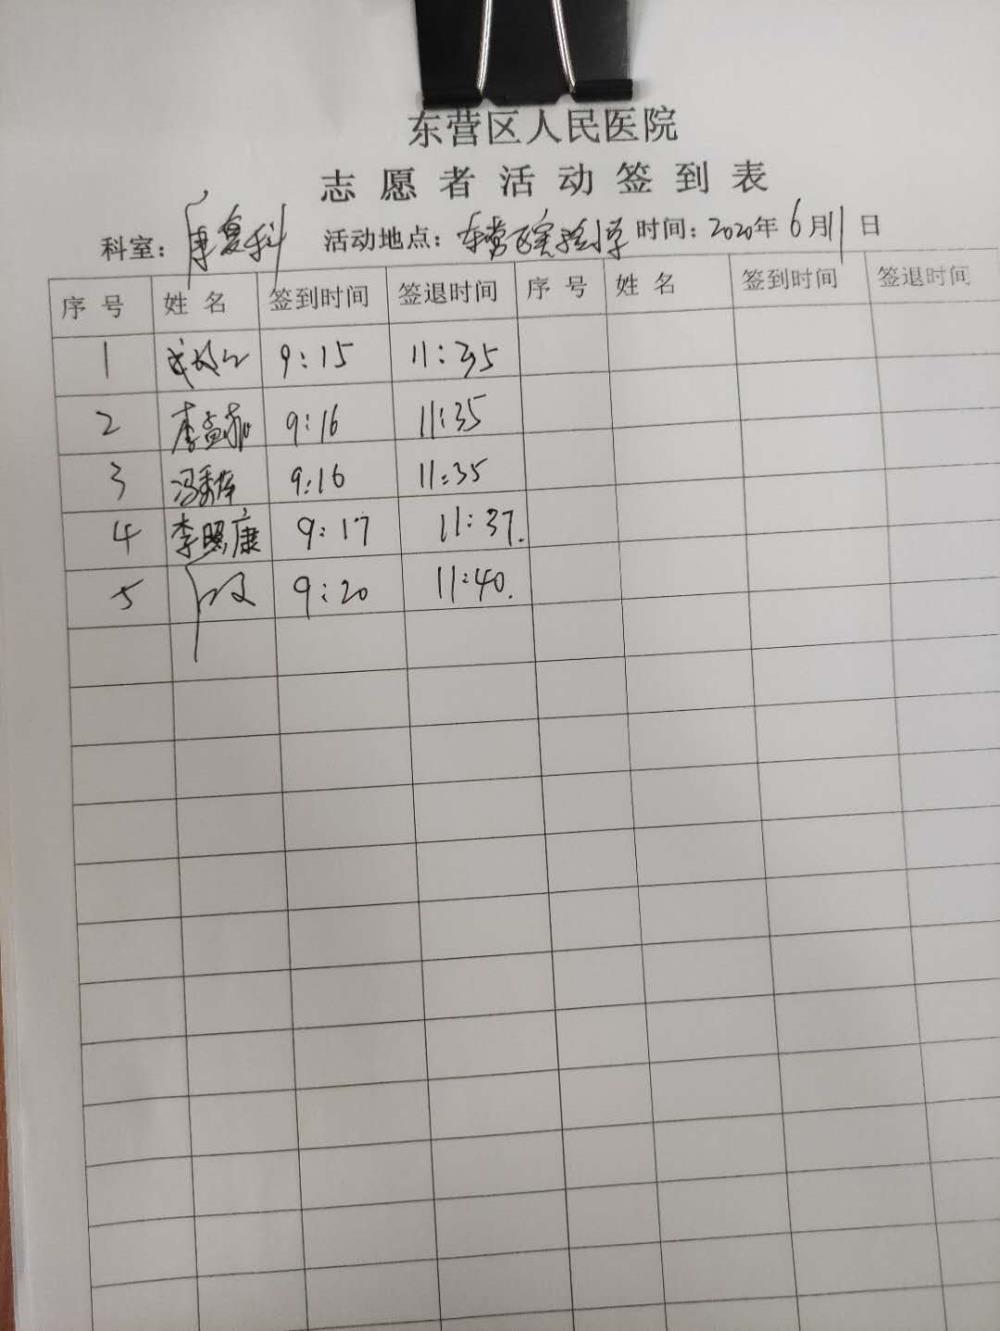 东营区人民医院
志愿者活动签到表
科室：康复科 活动地点：东营区实验小学 时间：2020年6月11日
序号 姓名 签到时间 签退时间 序号 姓名 签到时间 签退时间
1 9:15 11:35
2 李孟 9:16 11:35
3 冯 9:16 11:35
4 李照康 9:17 11:37.
5 9:20 11:40.